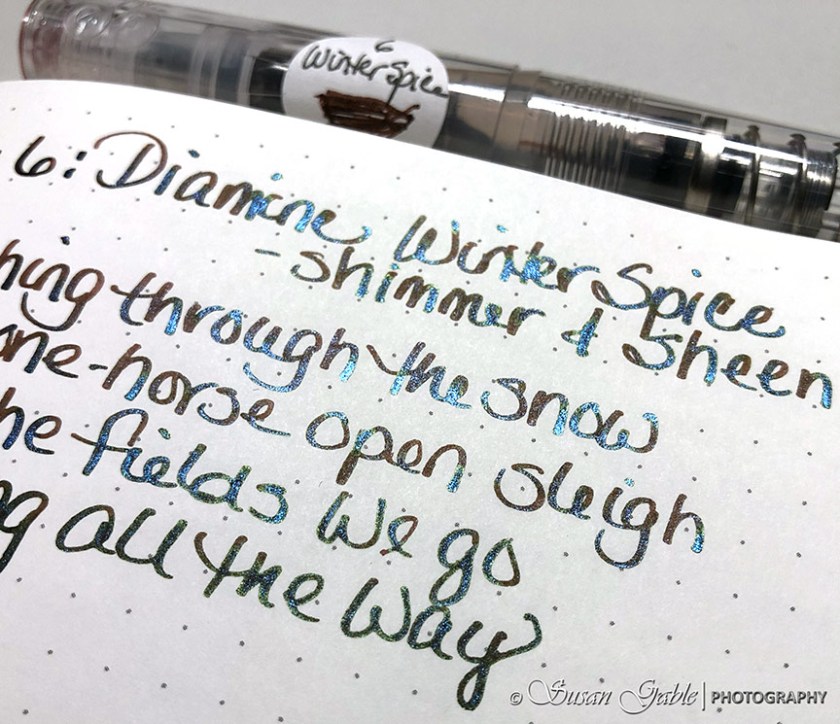 6
Winter Spice
6: Diamine Winter Spice
- shimmer & Sheen
hing through the snow
one-horse open sleigh
he fields we go
ng all the way
© Susan Gable | PHOTOGRAPHY